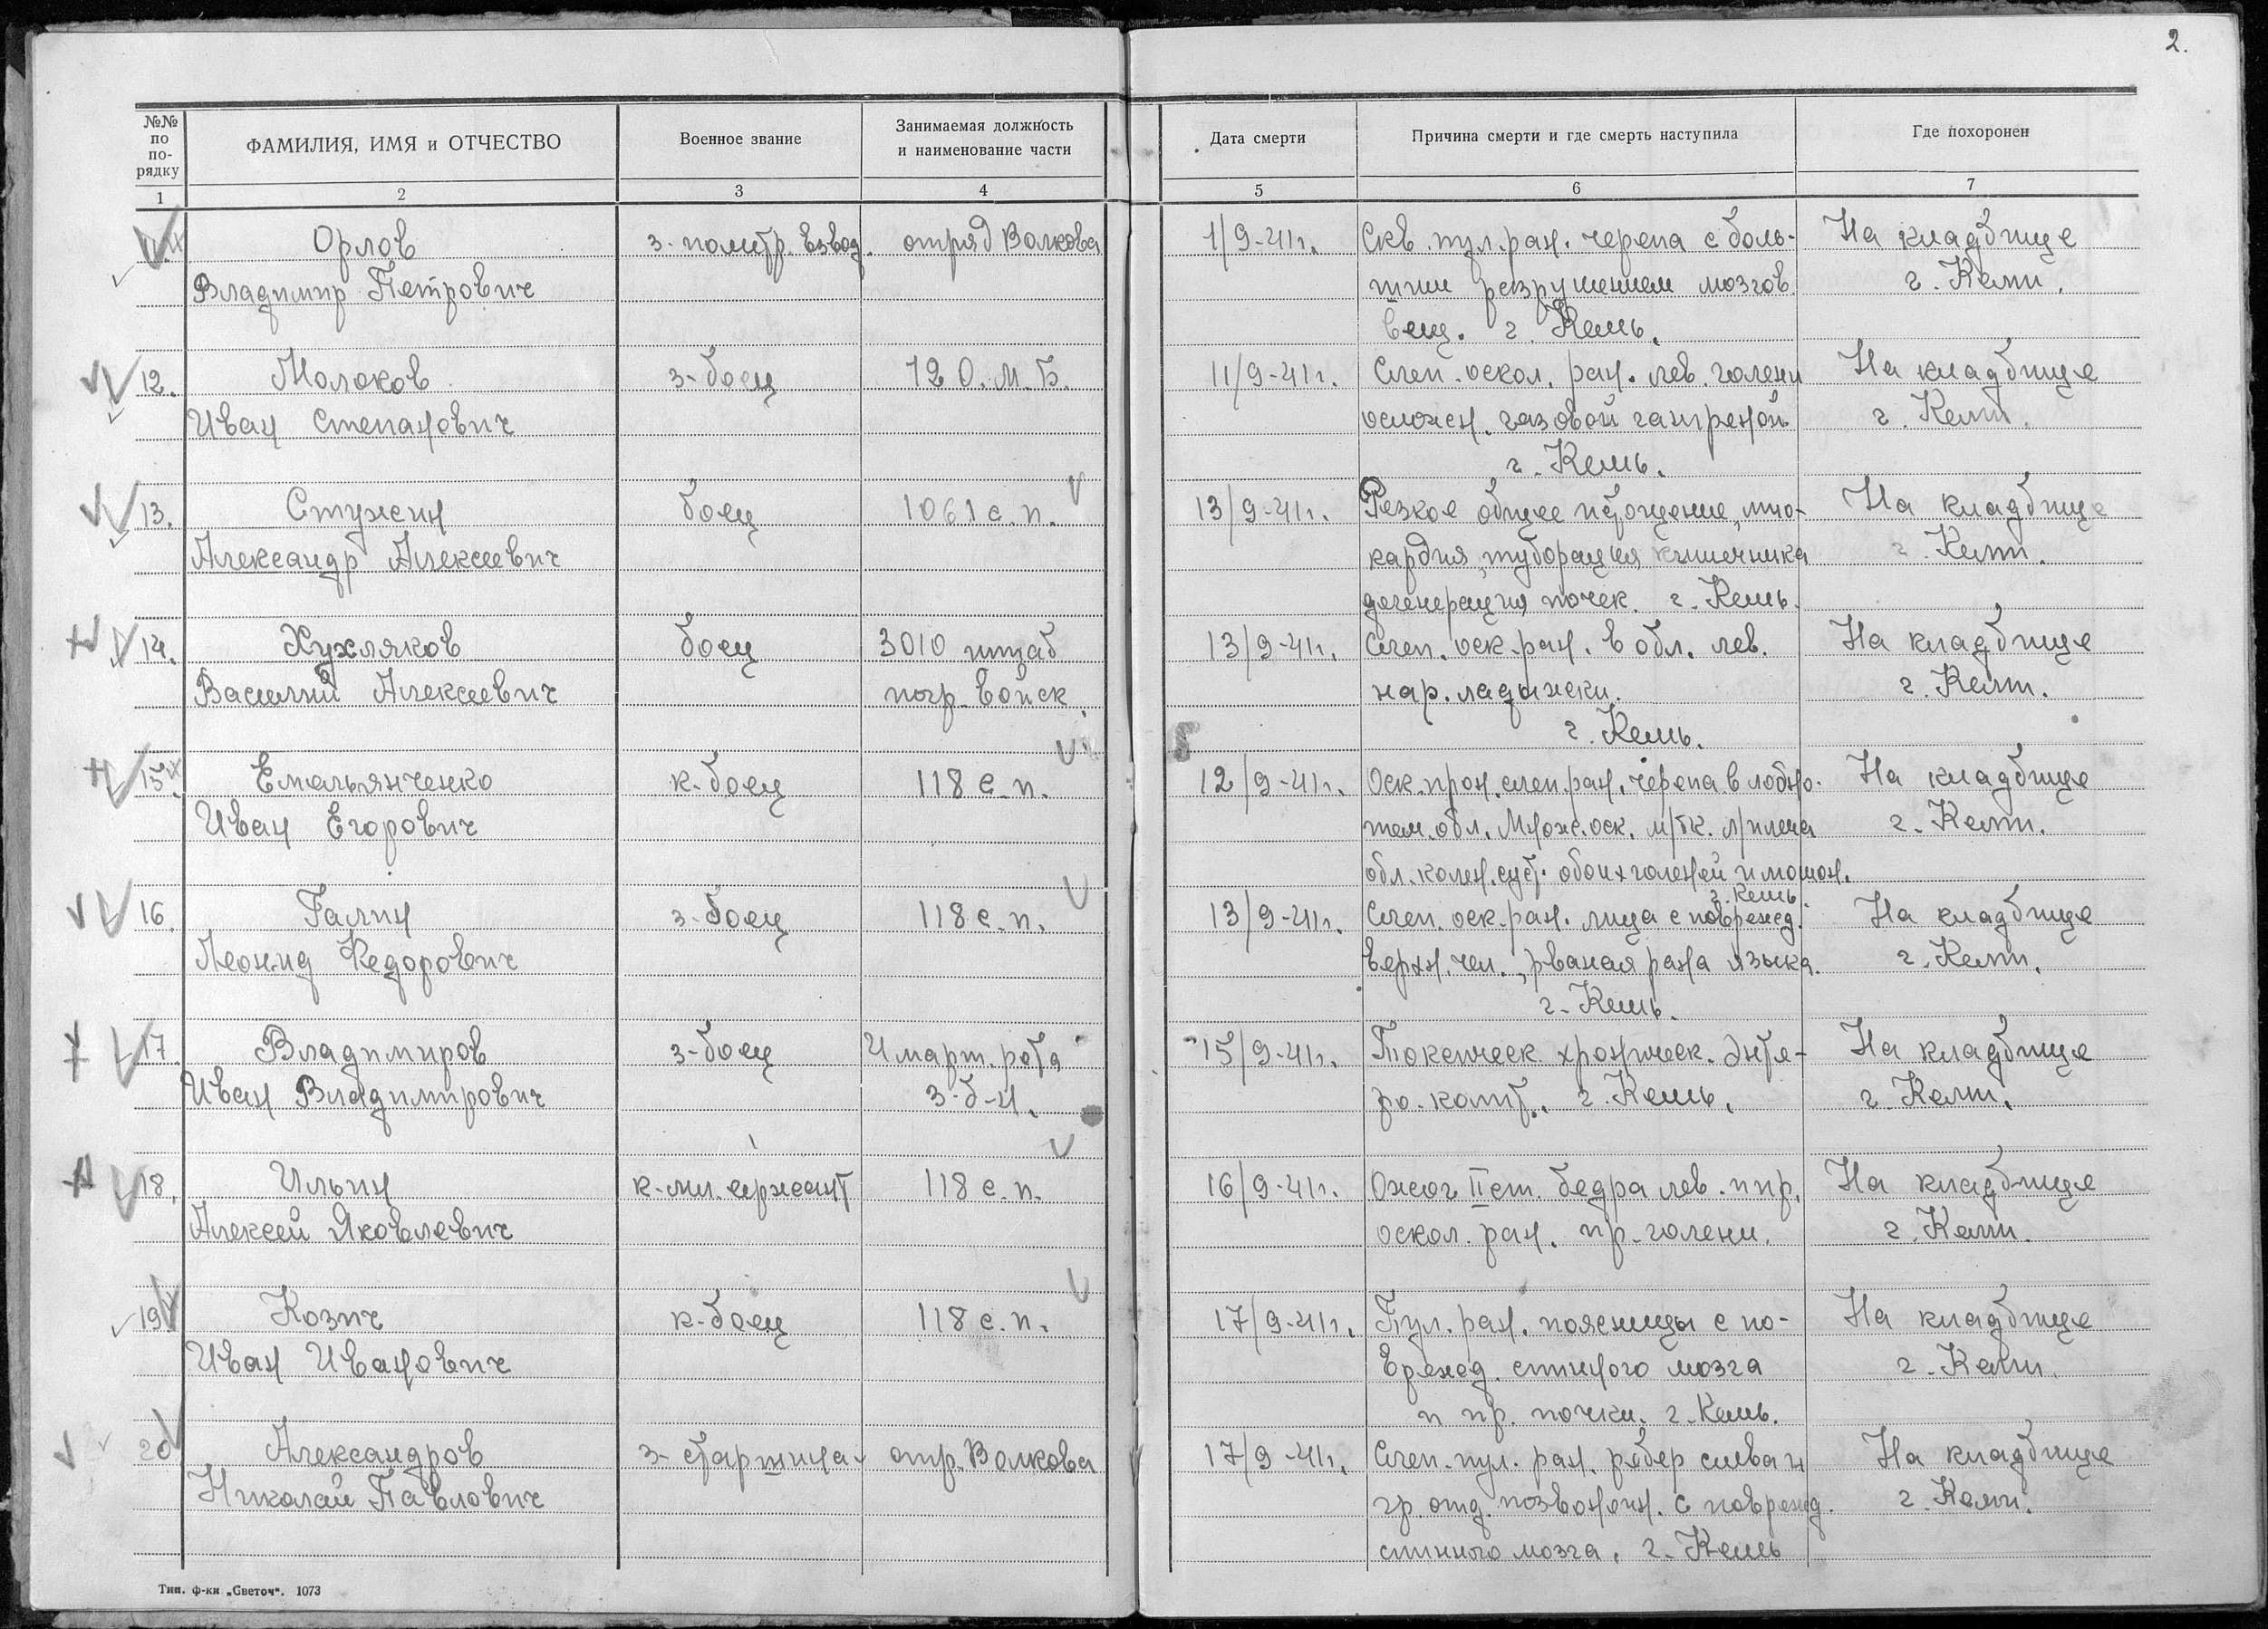 2.
№№ по по- рядку
ФАМИЛИЯ, ИМЯ и ОТЧЕСТВО
Военное звание
Занимаемая должность и наименование части
Дата смерти
Причина смерти и где смерть наступила
Где похоронен
1 2 3 4 5 6 7
Орлов з-политр. взвод. отряд Волкова 1/9-41г. Скв. пул. ран. черепа с боль- На кладбище
Владимир Петрович шим разрушением мозгов. г. Кеми.
вещ. г. Кемь.
12. Молоков з-боец 72 О.М.Б. 11/9-41г. Слеп. оскол. ран. лев. голени На кладбище
Иван Степанович осложн. газовой гангреной г. Кеми.
г. Кемь.
13. Стужин боец 1061 с.п. 13/9-41г. Резкое общее истощение, мио- На кладбище
Александр Алексеевич кардия, кишечника г. Кеми.
дегенерация почек. г. Кемь.
14. Хухляков боец 3010 штаб 13/9-41г. Слеп. оск. ран. в обл. лев. На кладбище
Василий Алексеевич погр. войск. нар. ладыжки. г. Кеми.
г. Кемь.
15. Емельянченко к-боец 118 с.п. 12/9-41г. Оск. прон. слеп. ран. черепа в лобно- На кладбище
Иван Егорович тем. обл. Множ. оск. м/тк. л/плеча г. Кеми.
обл. колен. суст. обоих голеней и мошон.
г. Кемь.
16. Галин з-боец 118 с.п. 13/9-41г. Слеп. оск. ран. лица с поврежд. На кладбище
Леонид Федорович верхн. чел., рваная рана языка. г. Кеми.
г. Кемь.
17. Владимиров з-боец И март. рота 15/9-41г. Токсическ. хроническ. Энте- На кладбище
Иван Владимирович 3-б-н. ро-колит. г. Кемь. г. Кеми.
18. Ильин к-мл. сержант 118 с.п. 16/9-41г. Ожог II ст. бедра лев. и пр. На кладбище
Алексей Яковлевич оскол. ран. пр. голени. г. Кеми.
19. Козич к-боец 118 с.п. 17/9-41г. Пул. ран. поясницы с по- На кладбище
Иван Иванович врежд. спиного мозга г. Кеми.
и пр. почки. г. Кемь.
20 Александров з-старшина отр. Волкова 17/9-41г. Слеп. пул. ран. ребер слева и На кладбище
Николай Павлович гр. отд. позвоночн. с поврежд. г. Кеми.
спинного мозга. г. Кемь
Тип. ф-ки „Светоч“. 1073